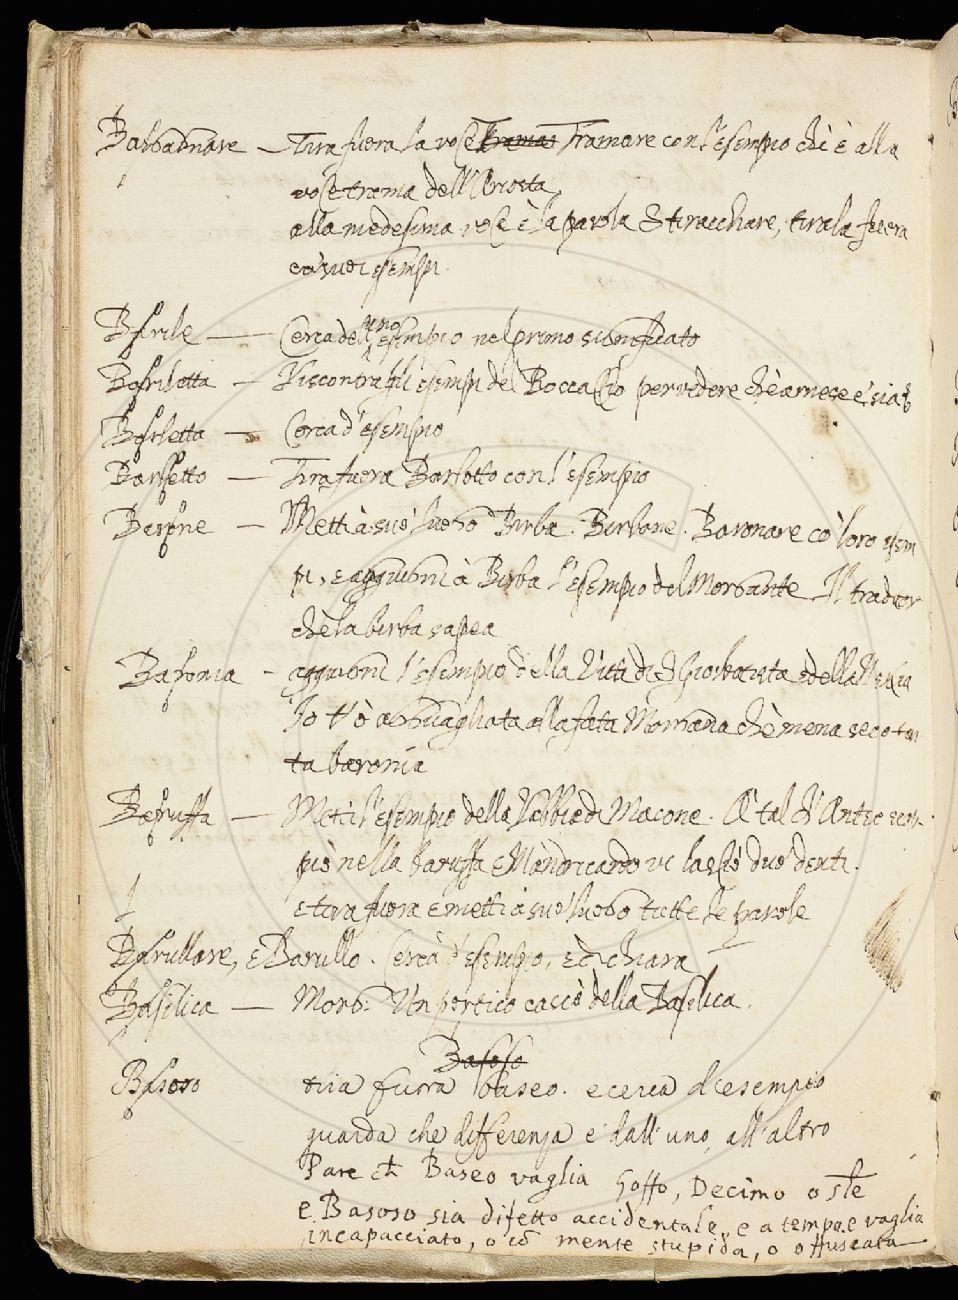 Tira fuora la voce Tramare con l'esempio chè è alla
voce trama dell'
alla medesima voce è la parola Stiracchiare, tirala fuora
esempi.
Cerca dell' uno esempio nel primo significato
Riscontra gli esempi del Boccaccio per vedere chè arnese e' sia
Cerca d'esempio
Tira fuora Barlotto con l'esempio
Barone — Metti à suo luogo Birba. Birbone. Baronare co loro esem
pi, e aggiugni à Birba l'esempio del Morgante Il traditor
chè la birba sapea
aggiugni l'esempio della
Io t'ò alla fata Morgana chè mena seco tan
ta baronia
Baruffa — Metti l'esempio della Rabbia di Macone. A tal d'Anteo
piò nella baruffa e Mandricardo vi lasciò duo denti.
e tira fuora e metti à suo luogo tutte le parole
Barullare, e Barullo. Cerca d'esempio, e dichiara
Basilica — Morg. Un portico cascò della Basilica.
Basoso
Basoso tira fuora baseo. e cerca d'esempio
guarda che differenza è dall'uno, all'altro
Pare ch Baseo vaglia Goffo, Decimo o
e Basoso sia difetto accidentale, e a tempo. e vaglia
incapacciato, o cō mente stupida, o offuscata